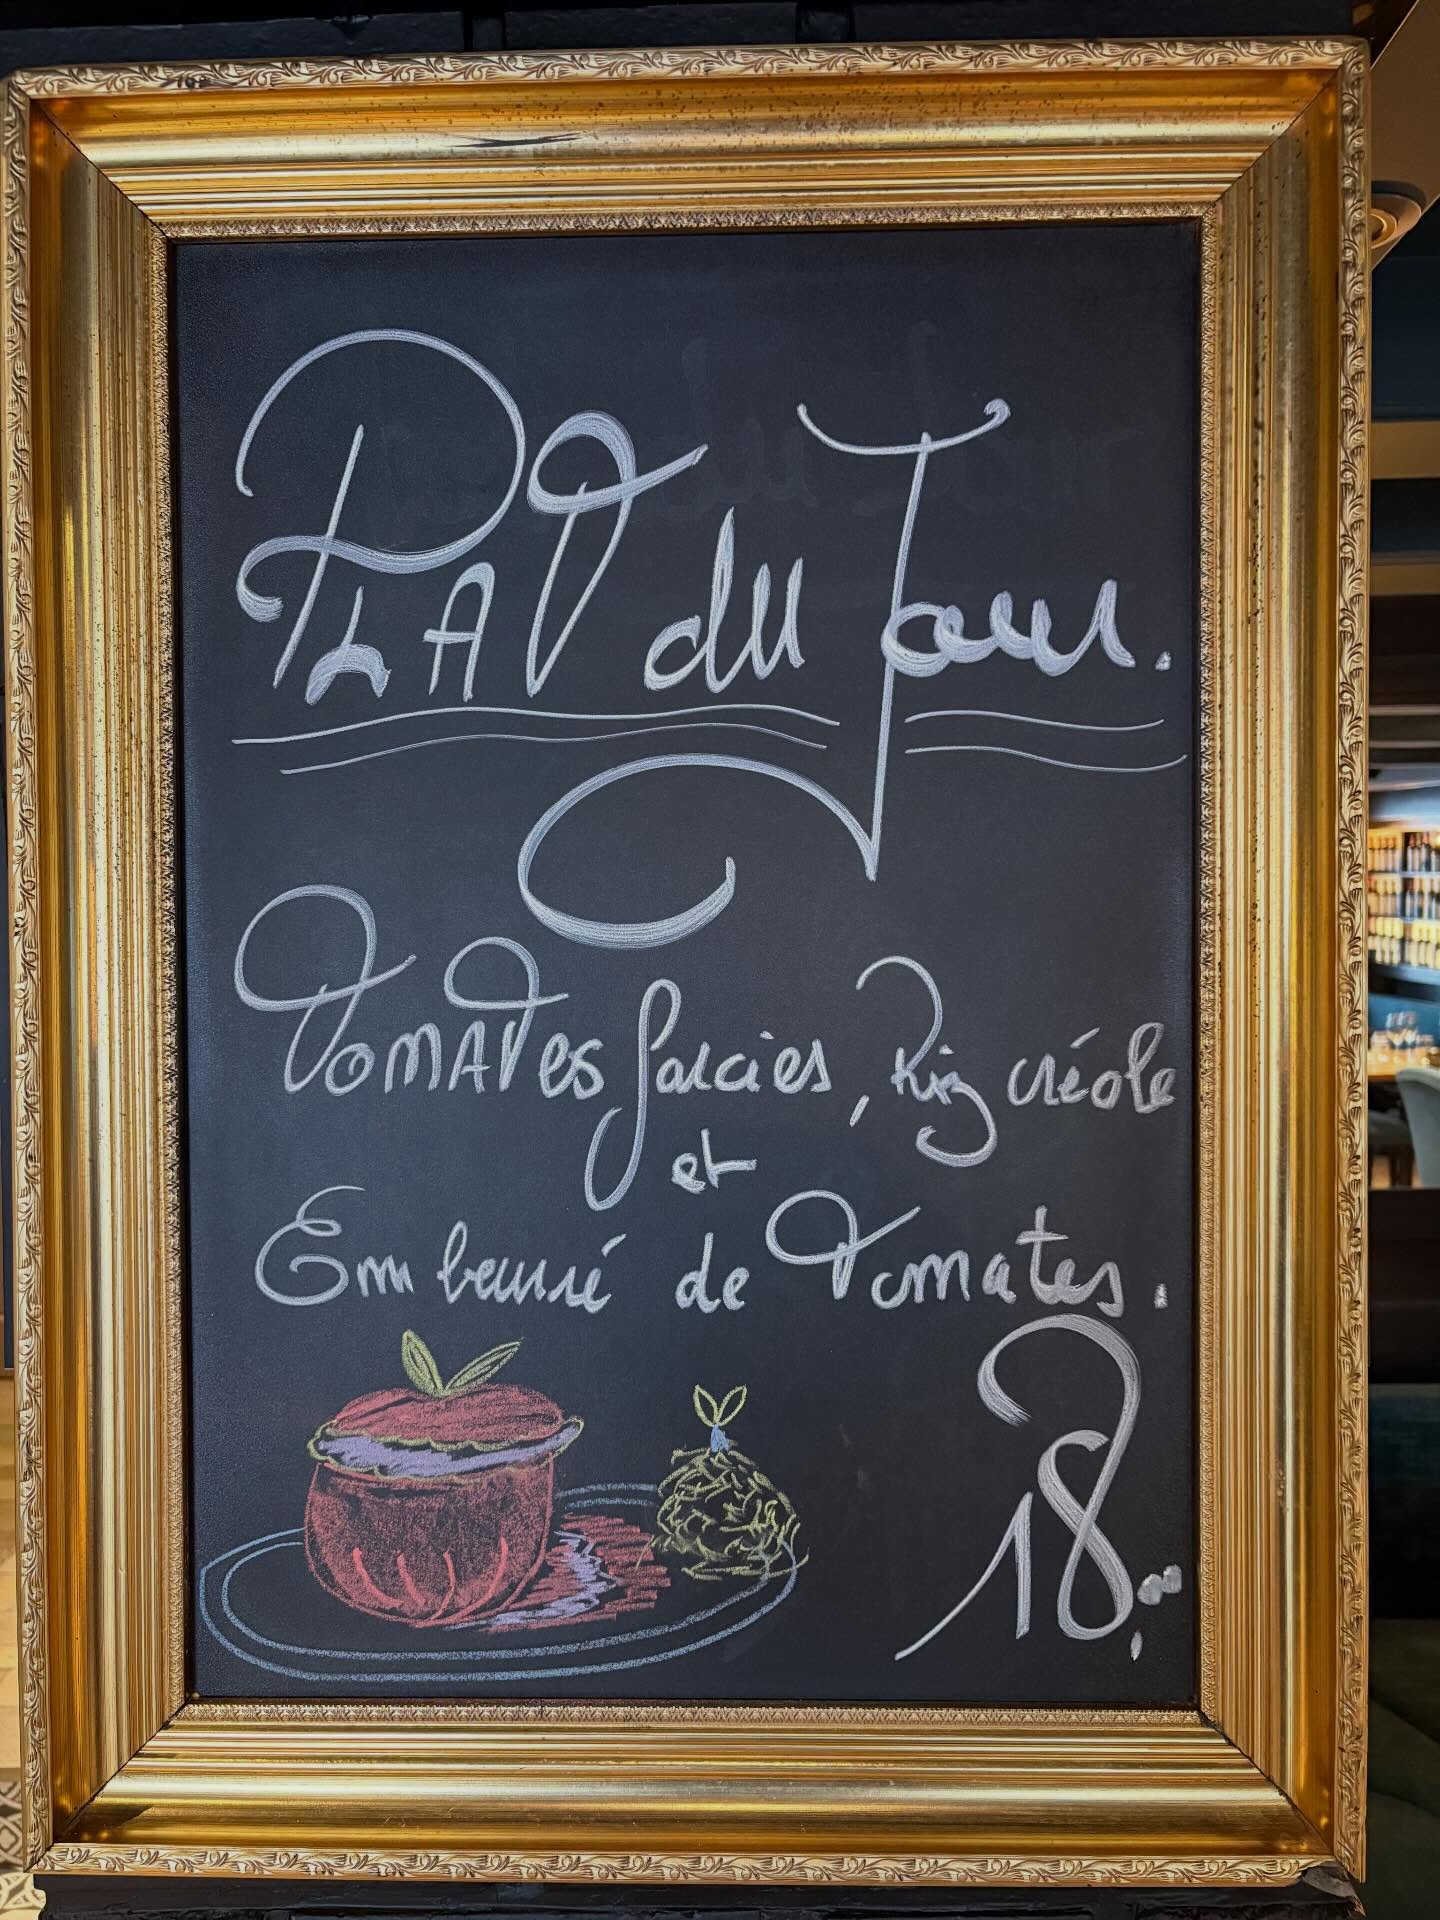 PLAT du Jour.
TOMATes farcies, Riz créole
et
Embeurré de Tomates.
18,00